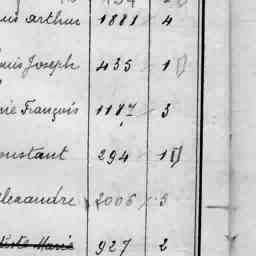 Arthur 1881 4
Joseph 435 1
François 1187 3
onstant 294 1
lexandre 2006 5
Marie 927 2